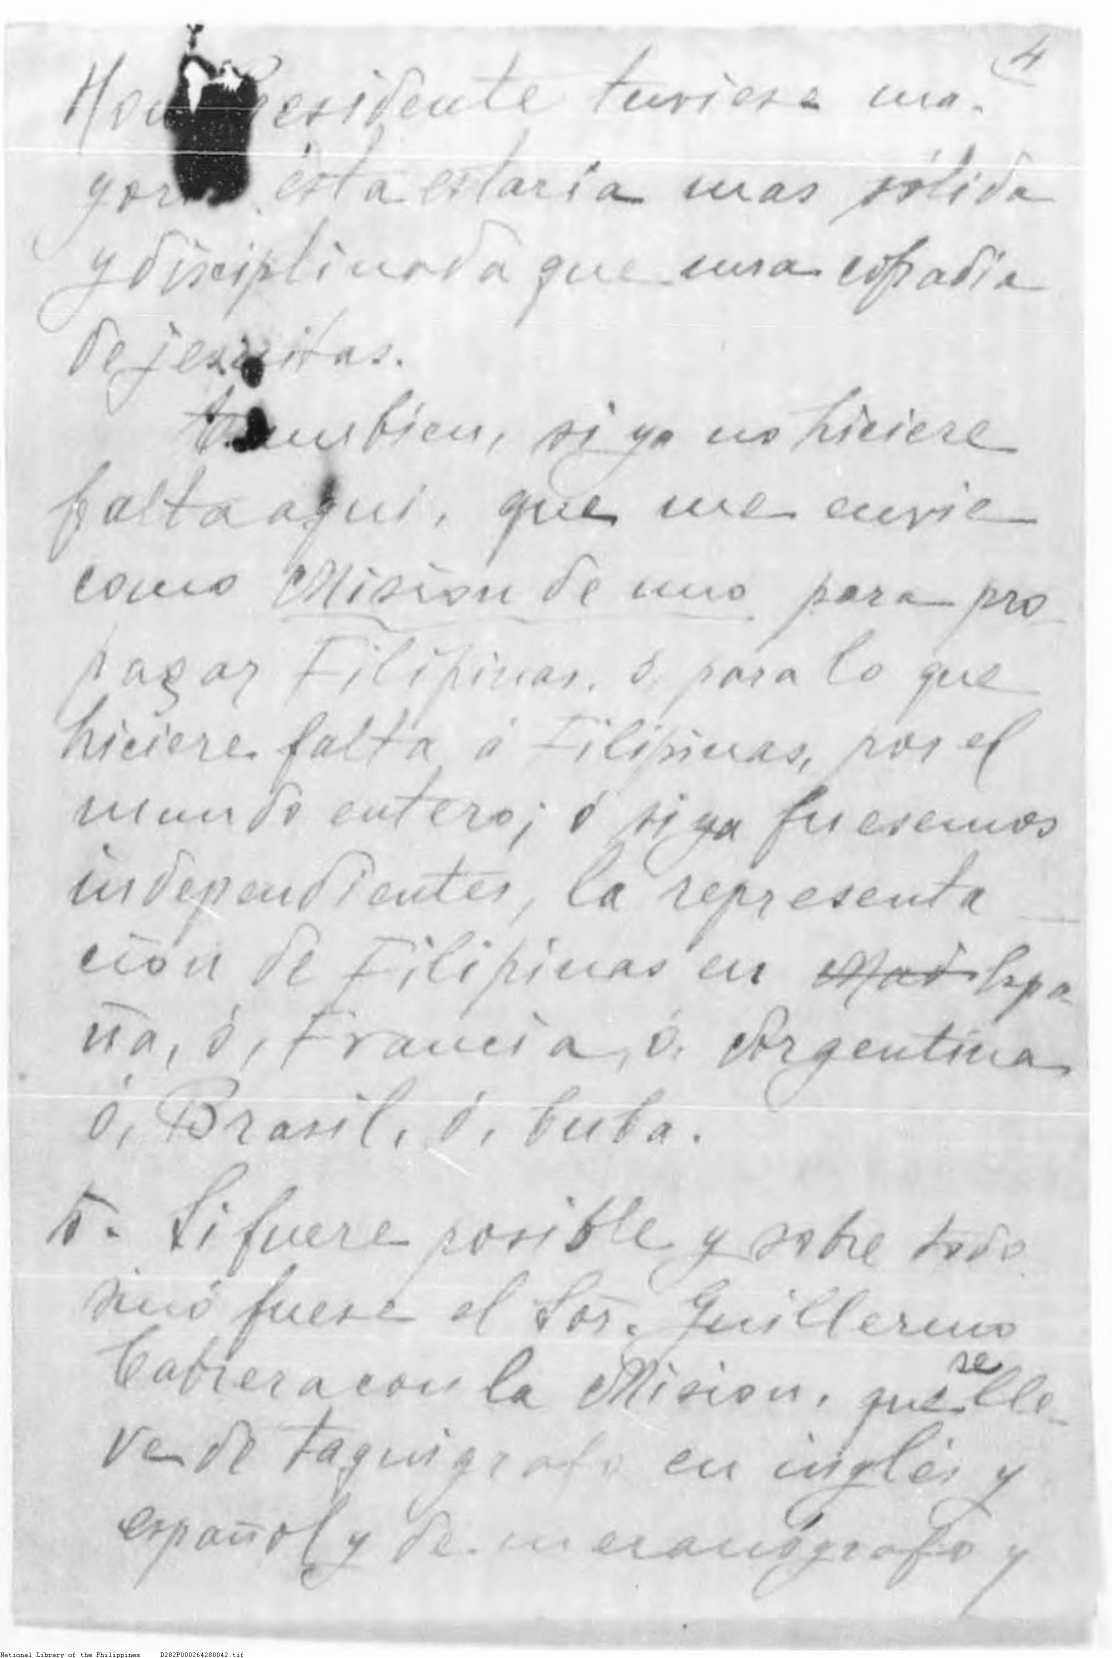 4
Hon. Presidente tuviese ma-
yoría ésta estaria mas sólida
y disciplinada que una cofradia
de jesuitas.
Tambien, si ya no hiciere
falta aqui, que me envie
como Mision de uno para pro
pagar Filipinas, ó para lo que
hiciere falta á Filipinas, por el
mundo entero; ó si ya fuesemos
independientes, la representa
ción de Filipinas en Mad Espa
ña, ó, Francia, ó, Argentina
ó, Brasil, ó, Cuba.
5. Si fuere posible y sobre todo
sinó fuese el Sor. Guillermo
Cabrera con la Mision, que se lle-
ve de taquigrafo en inglés y
español y de mecanógrafo y
National Library of the Philippines D282P000264280042.tif